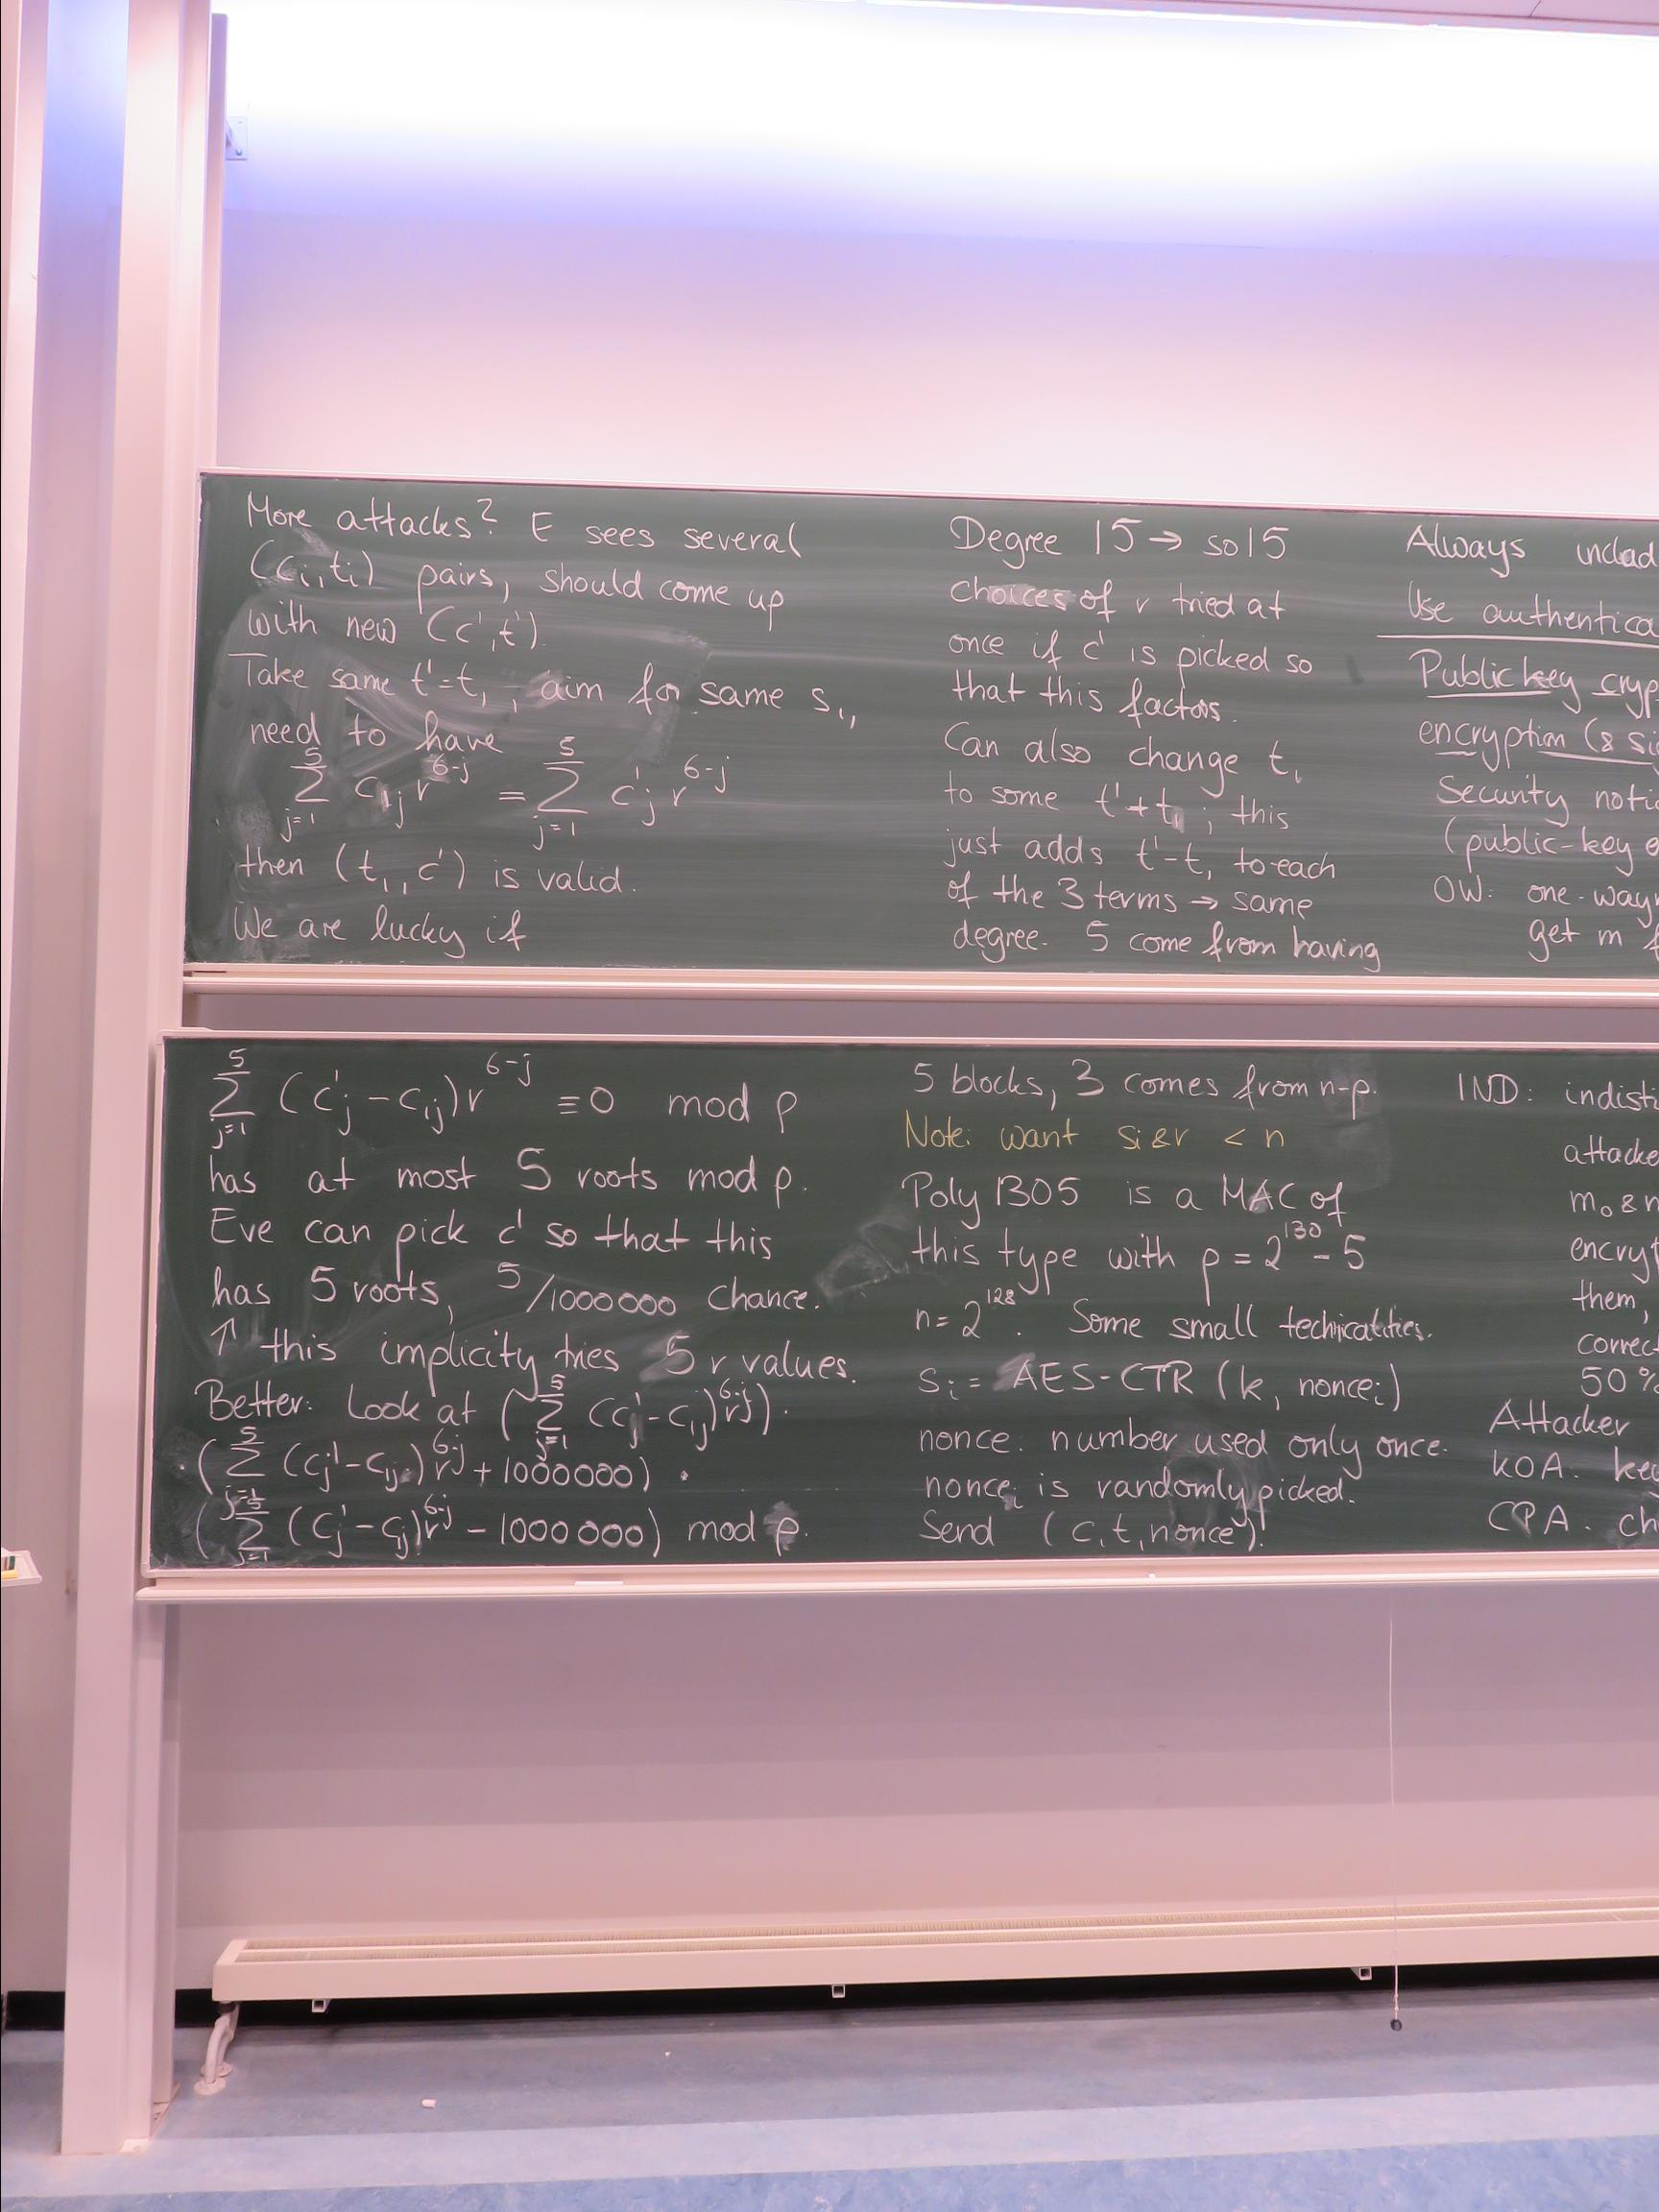 More attacks? E sees several
(c_i, t_i) pairs, should come up
with new (c', t').
Take same t' = t_1, aim for same s_1,
need to have
\sum_{j=1}^{5} c_{1j} r^{6-j} = \sum_{j=1}^{5} c'_j r^{6-j}
then (t_1, c') is valid.
We are lucky if
\sum_{j=1}^{5} (c'_j - c_{1j}) r^{6-j} ≡ 0 mod p
has at most 5 roots mod p.
Eve can pick c' so that this
has 5 roots, 5/1000000 chance.
↑ this implicity tries 5 r values.
Better: Look at (\sum_{j=1}^{5} (c'_j - c_{ij}) r^{6-j}) ·
· (\sum_{j=1}^{5} (c'_j - c_{ij}) r^{6-j} + 1000000) ·
(\sum_{j=1}^{5} (c'_j - c_{ij}) r^{6-j} - 1000000) mod p.
Degree 15 → so 15
choices of r tried at
once if c' is picked so
that this factors.
Can also change t_1
to some t' ≠ t_1; this
just adds t' - t_1 to each
of the 3 terms → same
degree. 5 come from having
5 blocks, 3 comes from n-p.
Note: want s_i & r < n
Poly 1305 is a MAC of
this type with p = 2^{130} - 5
n = 2^{128}. Some small technicalities.
s_i = AES-CTR (k, nonce_i)
nonce: number used only once.
nonce_i is randomly picked.
Send (c, t, nonce)!
Always includ
Use authentica
Public key cryp
encryption (& si
Security notio
(public-key e
OW: one-wayn
get m f
IND: indisti
attacke
m_0 & m
encryp
them,
correct
50%
Attacker
KOA: key
CPA: ch